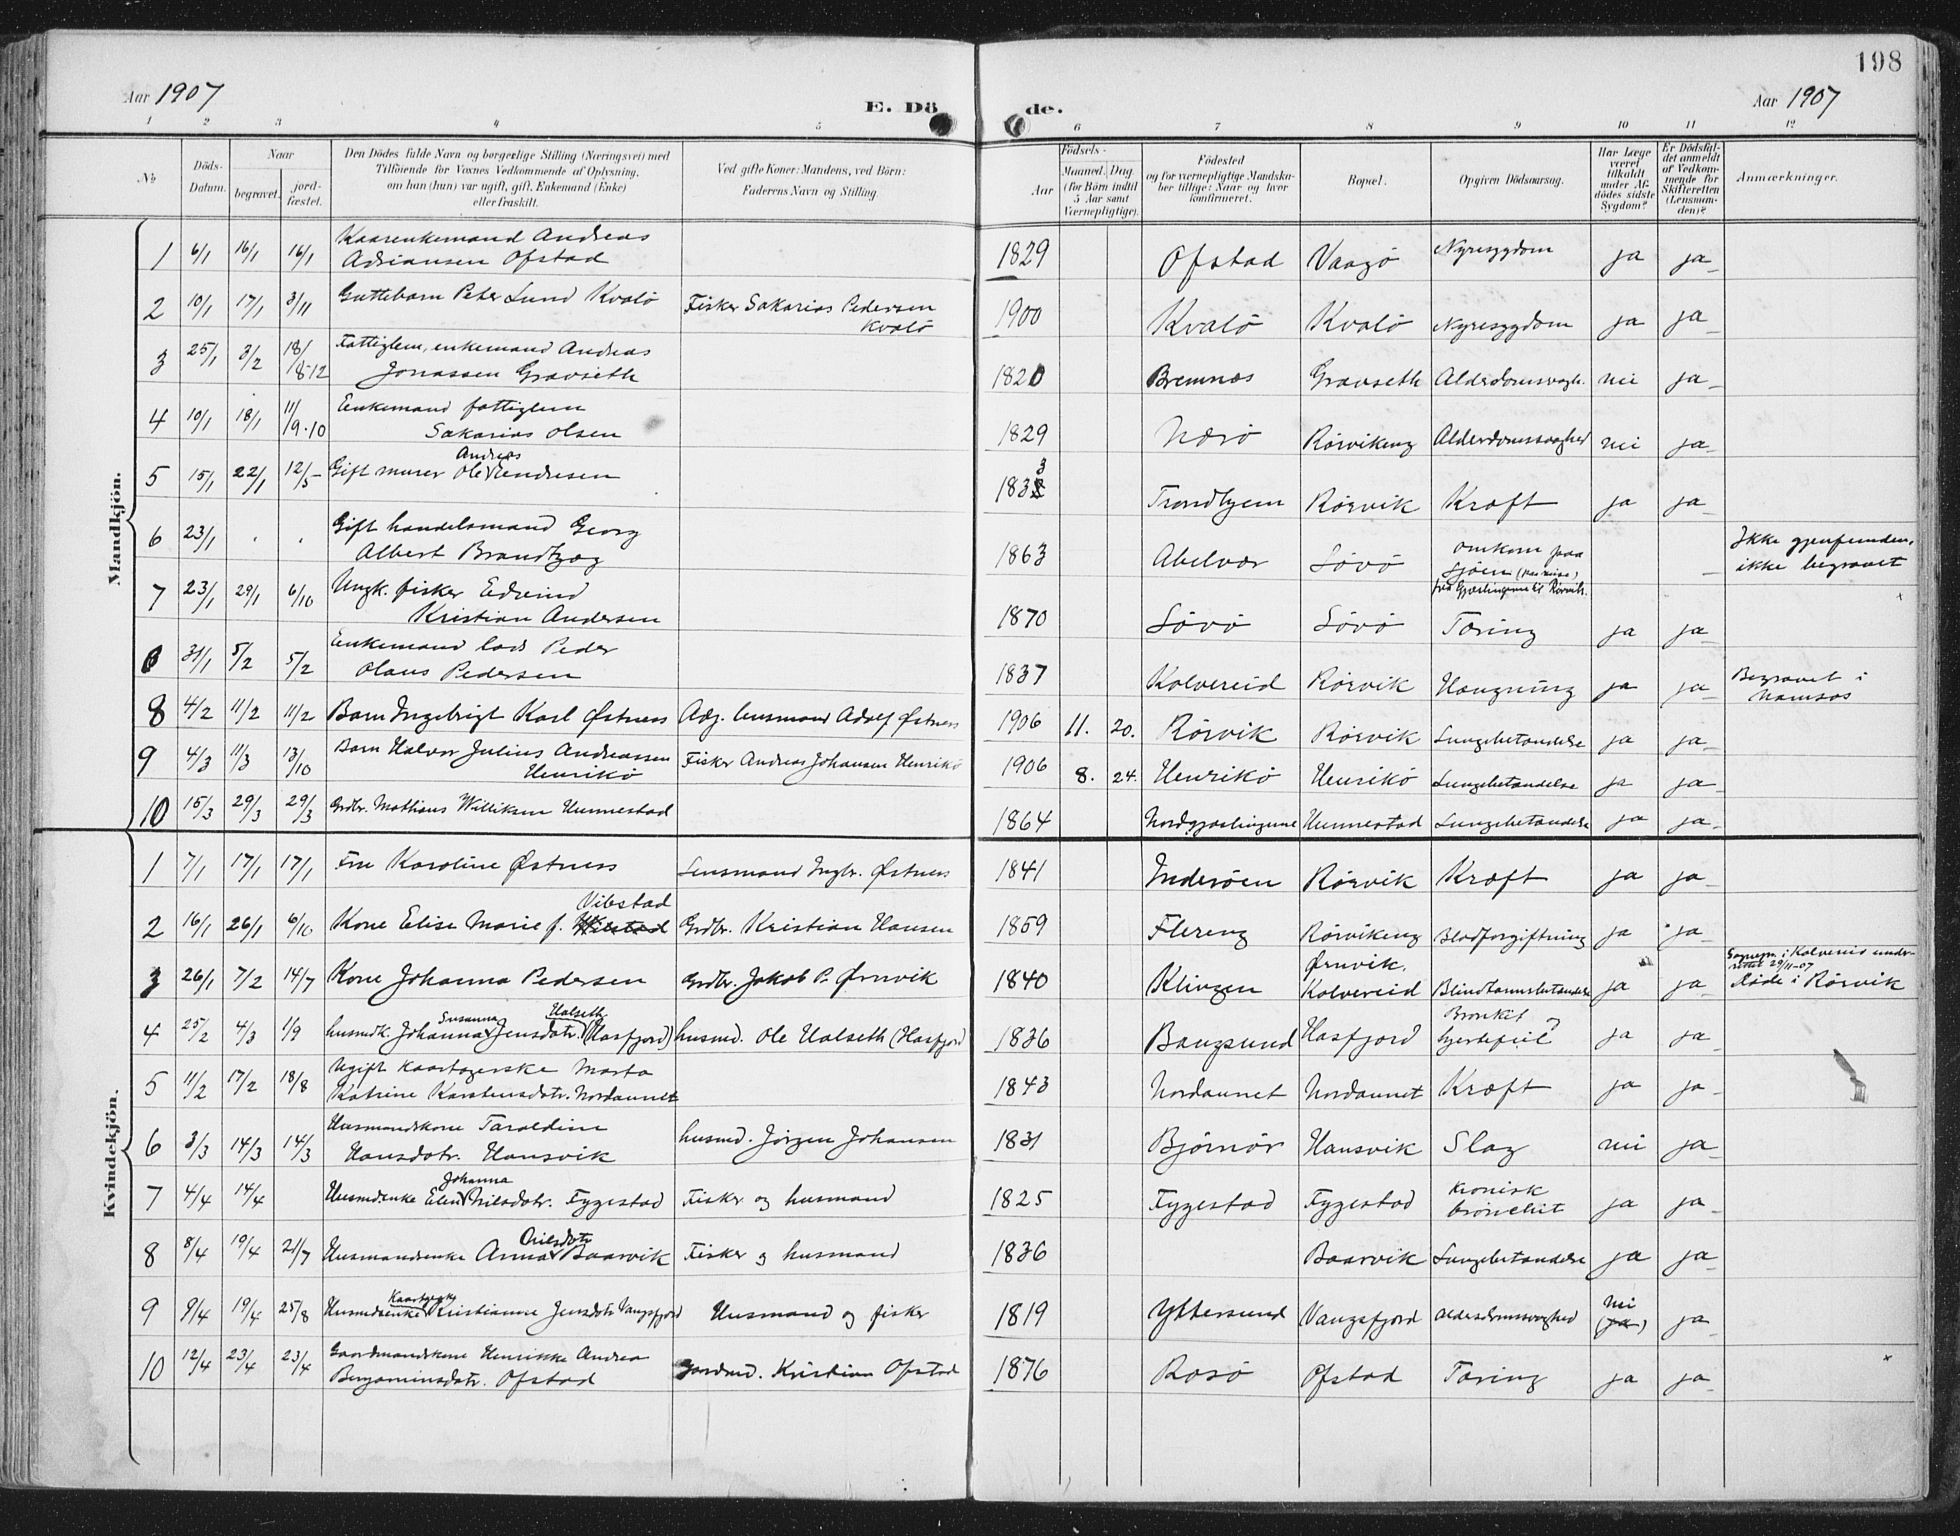 198
Aar 1907
E. Dö
de.
Aar 1907
1 2 3 4 5 6 7 8 9 10 11 12
No
Döds-
Datum.
Naar
begravet.
jord-
fæstet.
Den Dödes fulde Navn og borgerlige Stilling (Næringsvei) med
Tilföiende for Voxnes Vedkommende af Oplysning,
om han (hun) var ugift, gift, Enkemand (Enke)
eller fraskilt.
Ved gifte Koner: Mandens, ved Börn:
Faderens Navn og Stilling.
Födsels-
Aar
Maaned. Dag.
(for Börn indtil
5 Aar samt
Værnepligtige).
Födested
og for værnepligtige Mandska-
ber tillige: Naar og hvor
konfirmeret.
Bopæl.
Opgiven Dödsaarsag.
Har Læge
været
tilkaldt
under Af-
dödes sidste
Sygdom?
Er Dödsfal-
det anmeldt
af Vedkom-
mende for
Skifteretten
(Lensman-
den)?
Anmærkninger.
Mandkjön.
1 6/1 16/1 16/1 Kaarenkemand Andreas
Adriansen Ofstad 1829 Ofstad Vaagö Nyresygdom ja ja
2 10/1 17/1 3/11 Guttebarn Peter Lund Kvalö Fisker Sakarias Pedersen
Kvalö 1900 Kvalö Kvalö Nyresygdom ja ja
3 25/1 3/2 18/8-12 Fattiglem, enkemand Andreas
Jonassen Gravseth 1820 Bremnes Gravseth Alderdomssvagh. nei ja
4 10/1 18/1 11/9-10 Enkemand fattiglem
Sakarias Olsen 1829 Nærö Rörvikeng Alderdomssvaghed nei ja
Andreas
5 15/1 22/1 12/5 Gift murer Ole Endresen 183 3 Trondhjem Rörvik Kræft ja ja
6 23/1 . . Gift handelsmand Georg
Albert Brandtzæg 1863 Abelvær Sövö omkom paa
sjöen
fra Gjæslingerne til Rörvik. Ikke gjenfunden,
ikke begravet
7 23/1 29/1 6/10 Ungk. fisker Edvind
Kristian Andersen 1870 Sövö Sövö Tæring ja ja
31/1 5/2 5/2 Enkemand lods Peder
Olaus Pedersen 1837 Kolvereid Rörvik Hængning ja ja Begravet i
Namsos
8 4/2 11/2 11/2 Barn Ingebrigt Karl Østness Adj. lensmand Adolf Østness 1906 11. 20. Rörvik Rörvik Lungebetændelse ja ja
9 4/3 11/3 13/10 Barn Halvor Julius Andreassen
Henrikö Fisker Andreas Johansen Henrikö 1906 8. 24. Henrikö Henrikö Lungebetændelse ja ja
10 15/3 29/3 29/3 Grdbr. Mathias Williksen Hunnestad 1864 Nordgjæslingerne Hunnestad Lungebetændelse ja ja
Kvindekjön.
1 7/1 17/1 17/1 Fru Karoline Østness Lensmand Ingbr. Østness 1841 Inderöen Rörvik Kræft ja ja
Vibstad
2 16/1 26/1 6/10 Kone Elise Marie f. Grdbr. Kristian Hansen 1859 Flereng Rörvikeng Blodforgiftning ja ja
3 26/1 7/2 14/7 Kone Johanna Pedersen Grdbr. Jakob P. Ørnvik 1840 Klingen Ørnvik,
Kolvereid Blindtarmsbetændelse ja ja Sognepr. i Kolvereid under-
rettet 29/11-07
Döde i Rörvik
Susanna Halseth
4 25/2 4/3 1/9 husmdk. Johanna Jensdatr. (Hasfjord) husmd. Ole Halseth (Hasfjord) 1836 Bangsund Hasfjord Bronkit og
hjertefeil ja ja
5 11/2 17/2 18/8 Ugift kaartagerske Marta
Katrine Karstensdatr. Nordaunet 1843 Nordaunet Nordaunet Kræft ja ja
6 3/3 14/3 14/3 Husmandskone Taraldine
Hansdatr. Hansvik husmd. Jörgen Johansen 1831 Björnör Hansvik Slag nei ja
Johanna
7 4/4 14/4 Husmdenke Elen Nilsdatr. Fygestad Fisker og husmand 1825 Fygestad Fygestad kronisk
bronchit ja ja
8 8/4 19/4 21/7 Husmandsenke Anna Baarvik Fisker og husmand 1836 Baarvik Lungebetændelse ja ja
9 9/4 19/4 25/8 Husmdsenke Kristianne Jensdatr Vangsfjord Husmand og fisker 1819 Yttersund Vangsfjord Alderdomssvaghed nei
(ja) ja
10 12/4 23/4 23/4 Gaardmandskone Henrikke Andrea
Benjaminsdatr. Ofstad Gardmd. Kristian Ofstad 1876 Rosö Ofstad Tæring ja ja